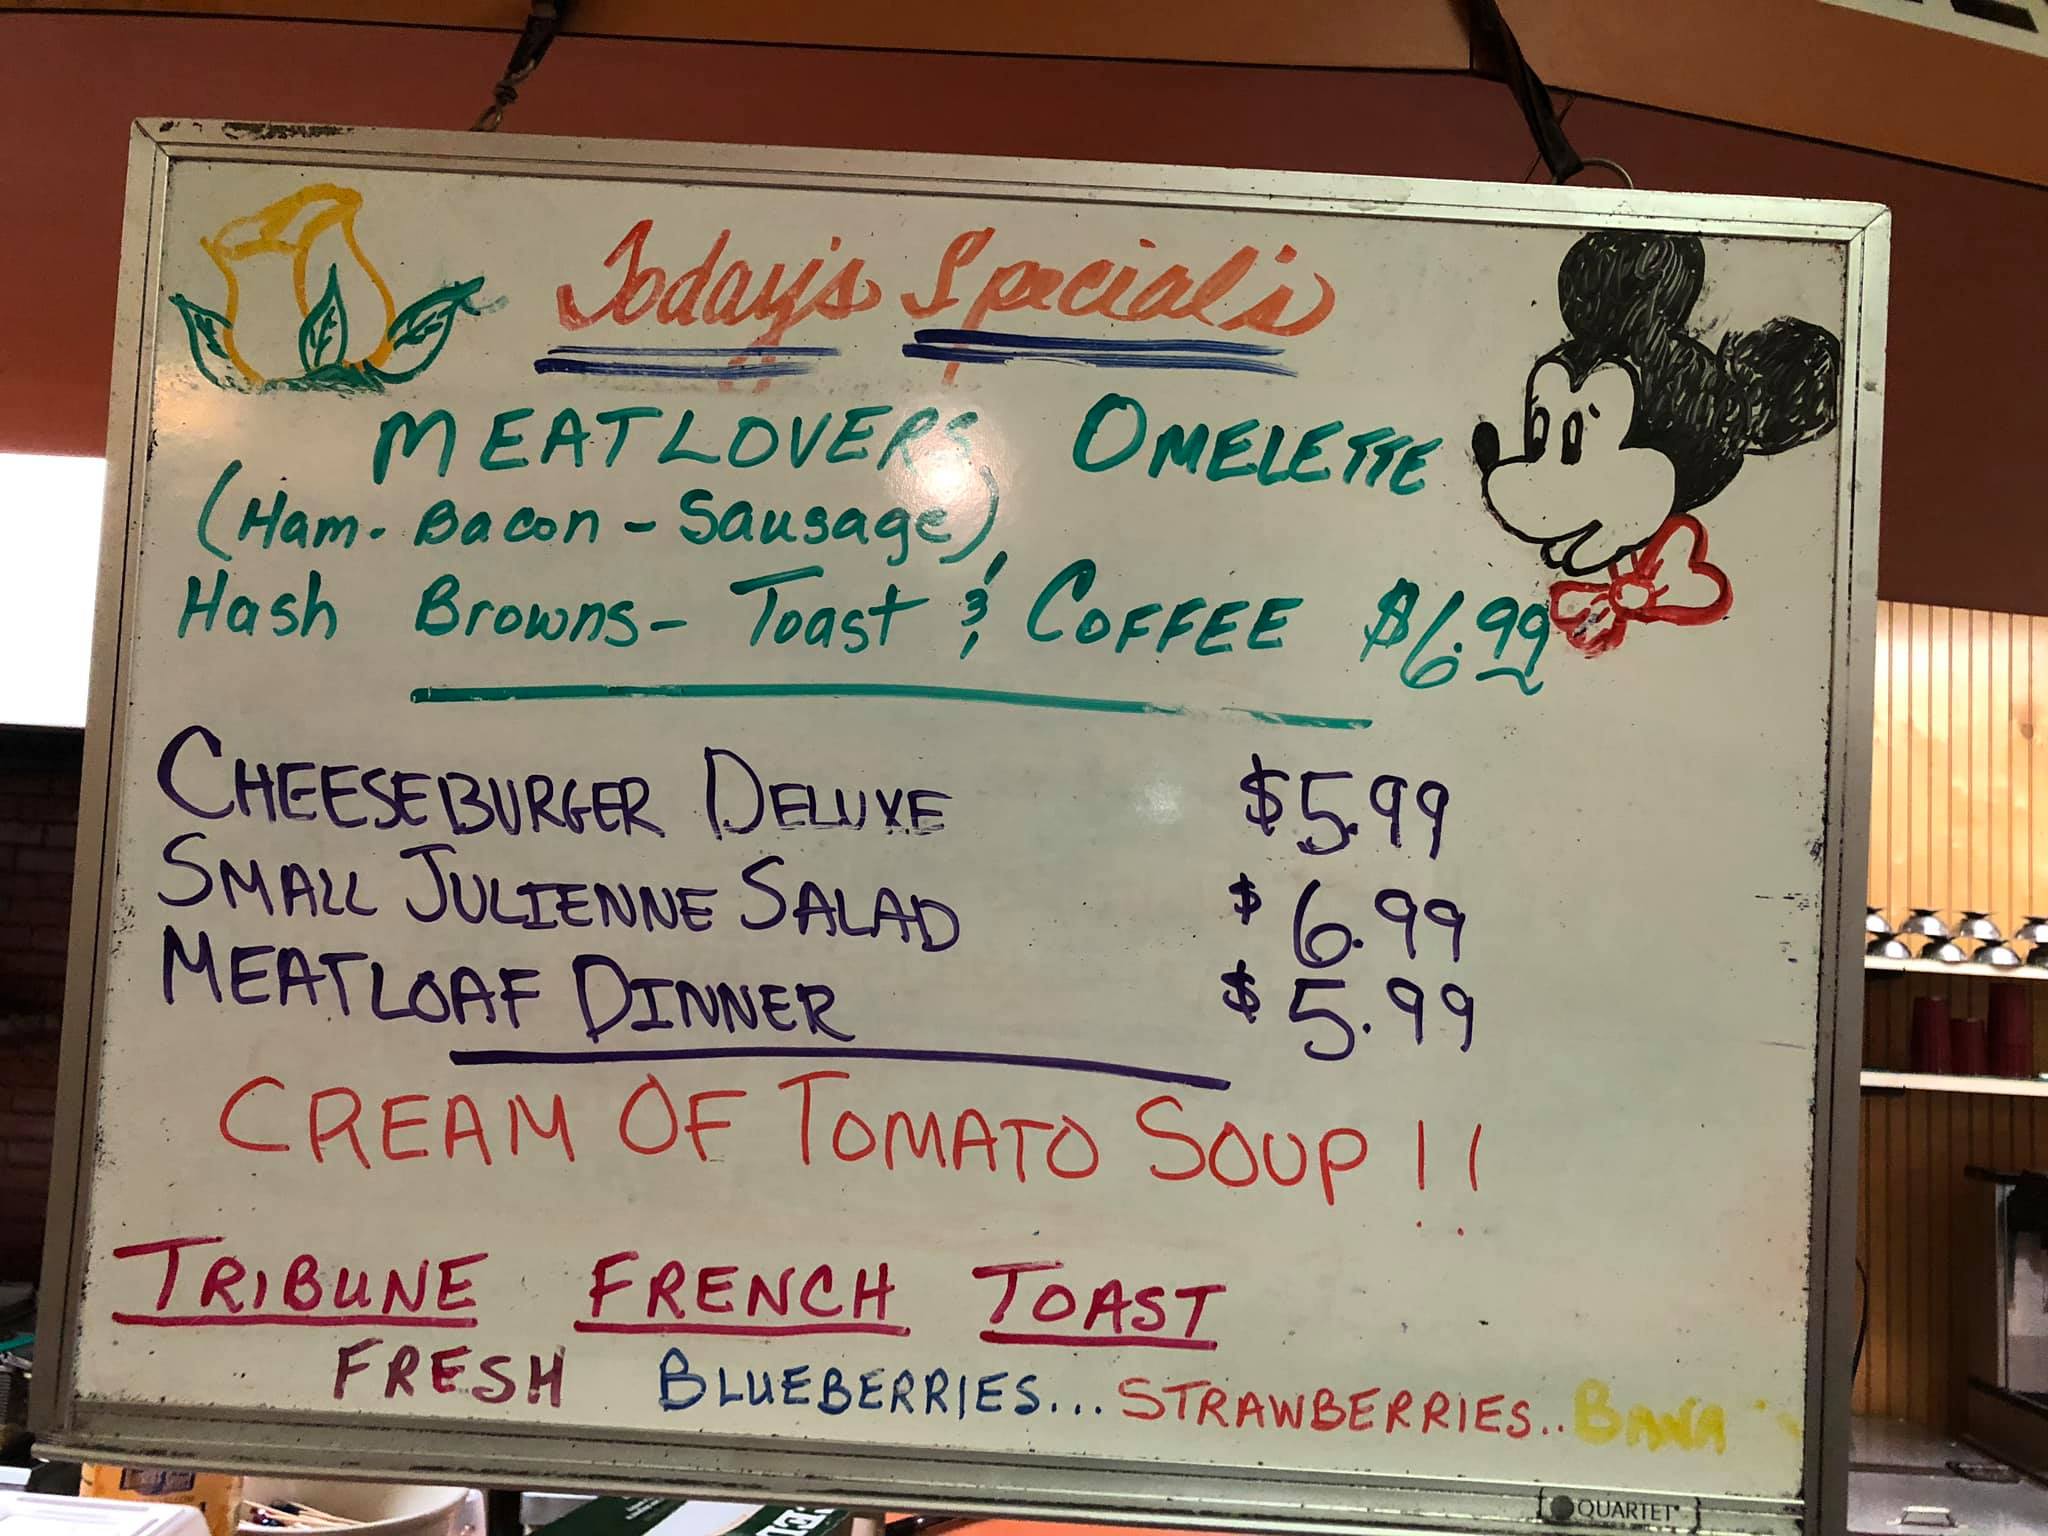 Today's Special's
MEATLOVERS OMELETTE
(Ham. Bacon - Sausage),
Hash Browns - Toast & COFFEE $6.99
CHEESEBURGER DELUXE $5.99
SMALL JULIENNE SALAD $6.99
MEATLOAF DINNER $5.99
CREAM OF TOMATO SOUP!!
TRIBUNE FRENCH TOAST
FRESH BLUEBERRIES... STRAWBERRIES..
QUARTET